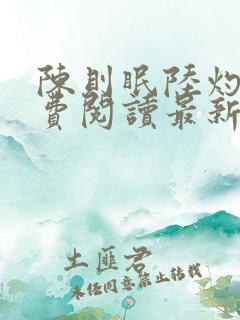 陳則眠陸灼
費閱讀最新
土匪君
未任同意禁止转载